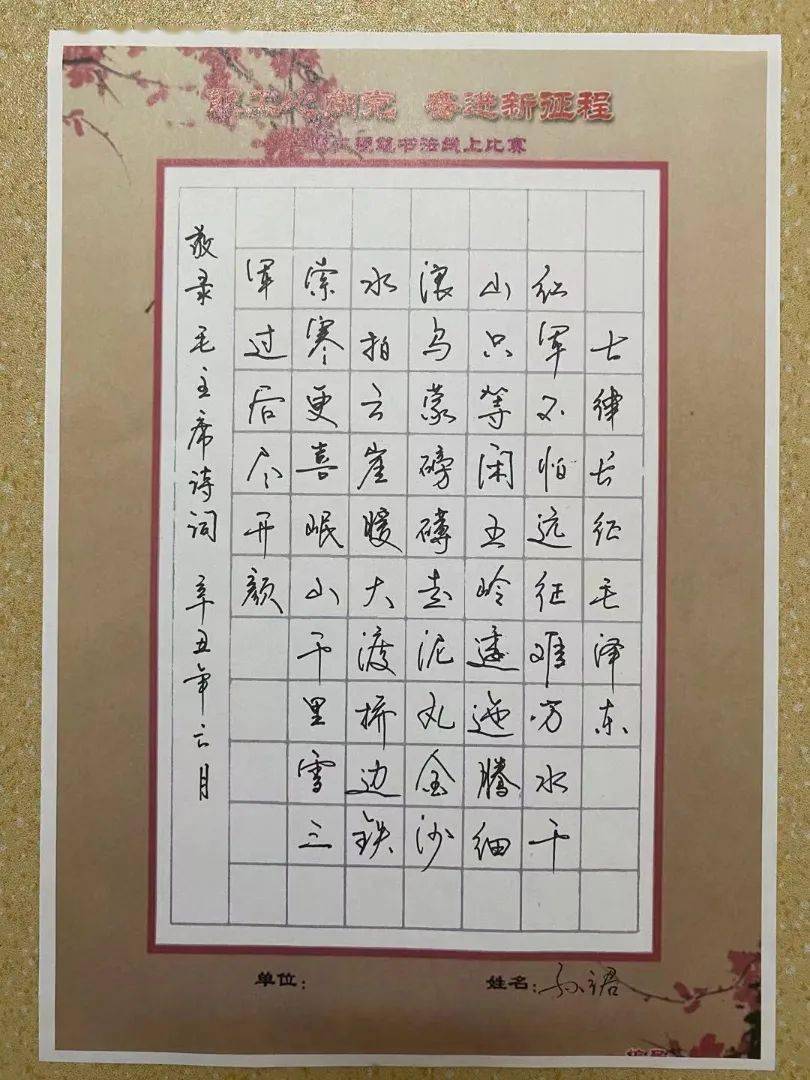 心向党 奋进新征程
硬笔书法线上比赛
七律长征毛泽东
红军不怕远征难万水千
山只等闲五岭逶迤腾细
浪乌蒙磅礴走泥丸金沙
水拍云崖暖大渡桥边铁
索寒更喜岷山千里雪三
军过后尽开颜
敬录毛主席诗词 辛丑年六月
单位：
姓名：孙